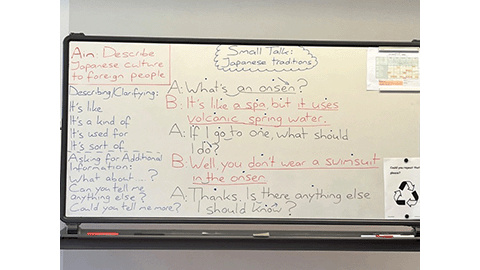 Aim: Describe
Japanese culture
to foreign people
Describing/Clarifying:
It's like
It's a kind of
It's used for
It's sort of
Asking for Additional
Information:
What about ...?
Can you tell me
anything else?
Could you tell me more?
Small Talk:
Japanese traditions
A: What's an onsen?
B: It's like a spa, but it uses
volcanic spring water.
A: If I go to one, what should
I do?
B: Well, you don't wear a swimsuit
in the onsen
A: Thanks. Is there anything else
I should know?
Could you repeat that
please?